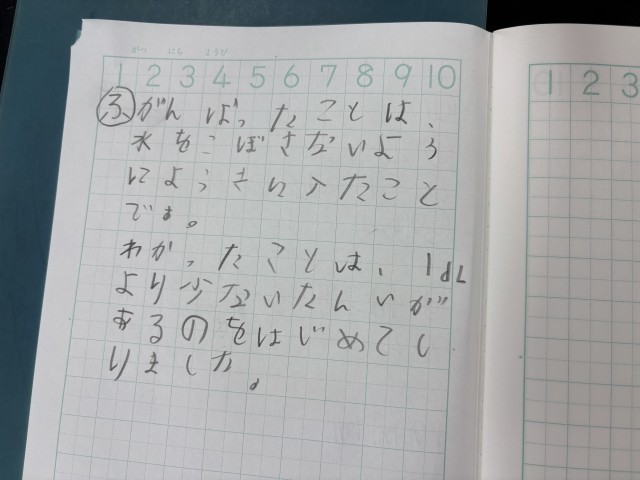 がつ にち ようび
1 2 3 4 5 6 7 8 9 10
ふ がんばったことは、
水をこぼさないよう
にようきに入れたこと
です。
わかったことは、1dL
より少ないたんいが
あるのをはじめてし
りました。
1 2 3